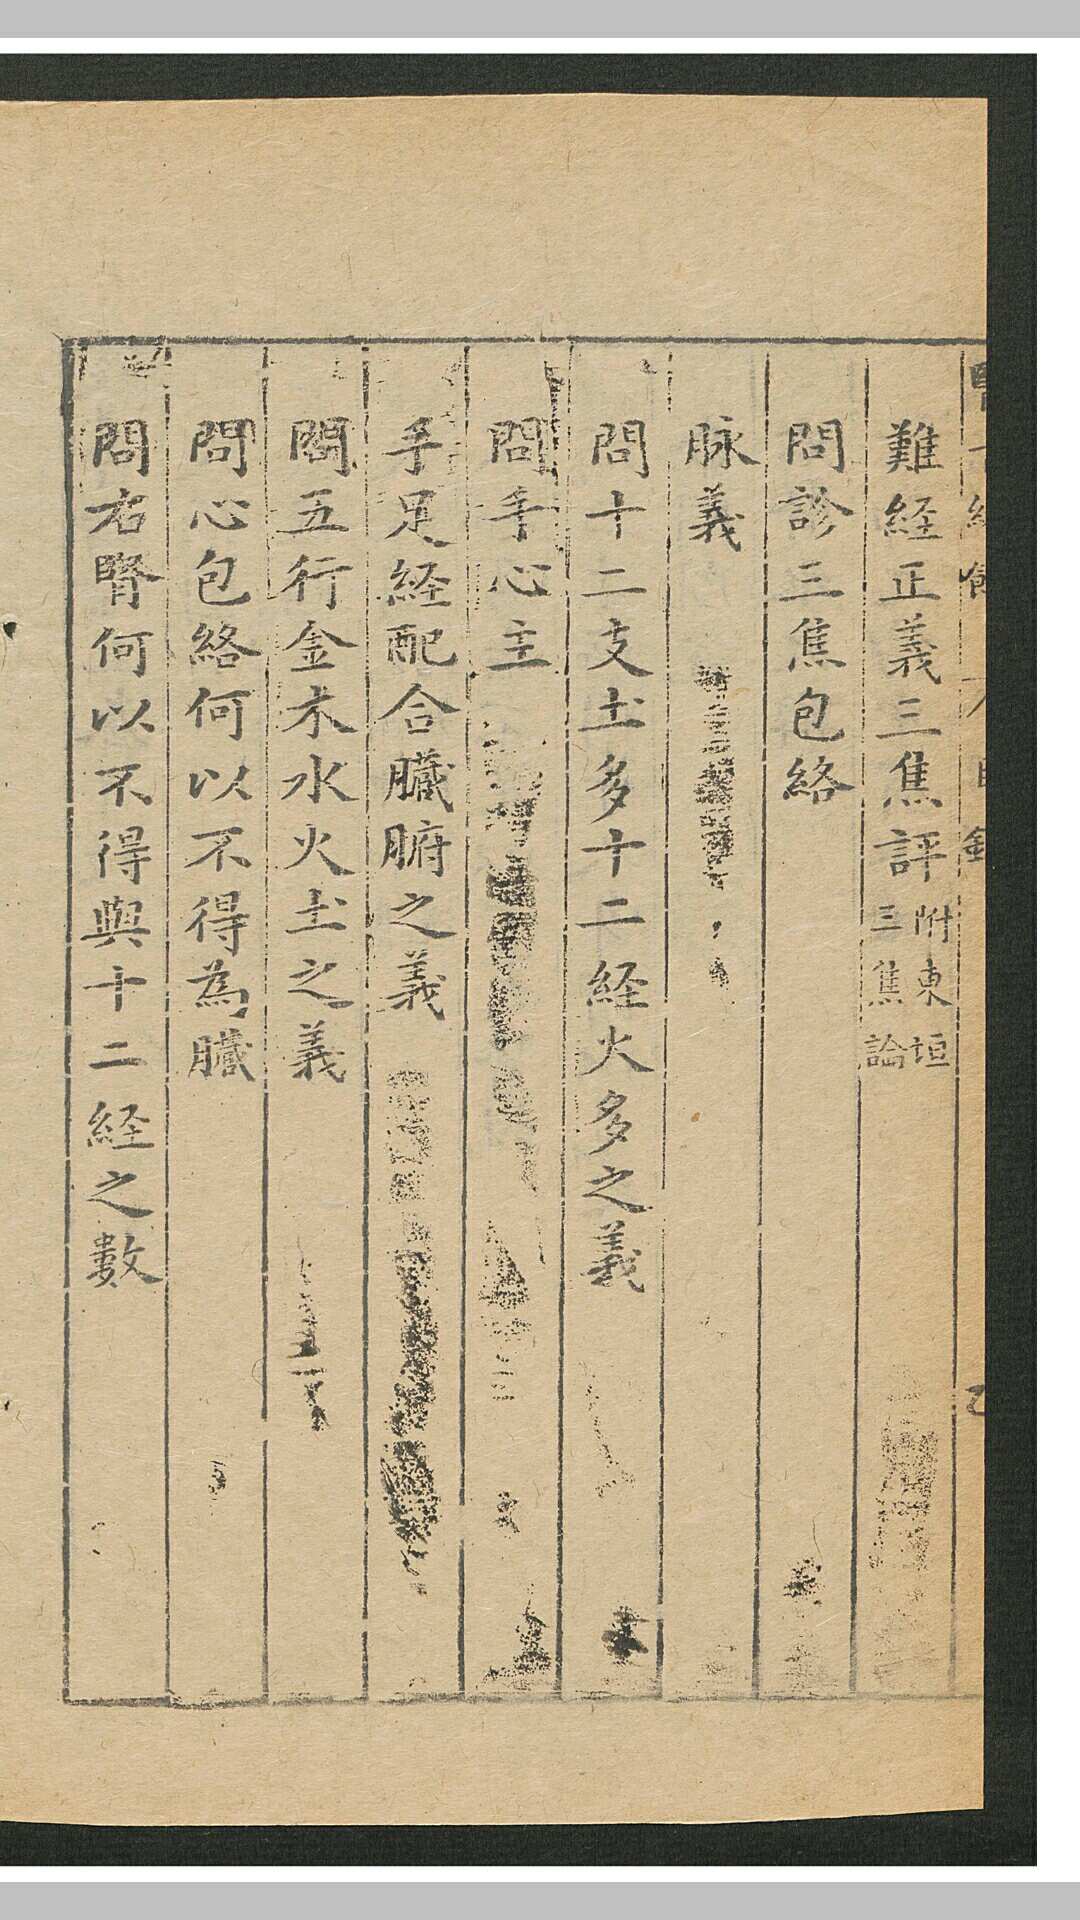 難経正義三焦評 附東垣三焦論
問診三焦包絡
脉義
問十二支土多十二経火多之義
問手心主
手足経配合臓腑之義
問五行金木水火土之義
問心包絡何以不得為臓
問右腎何以不得與十二経之數